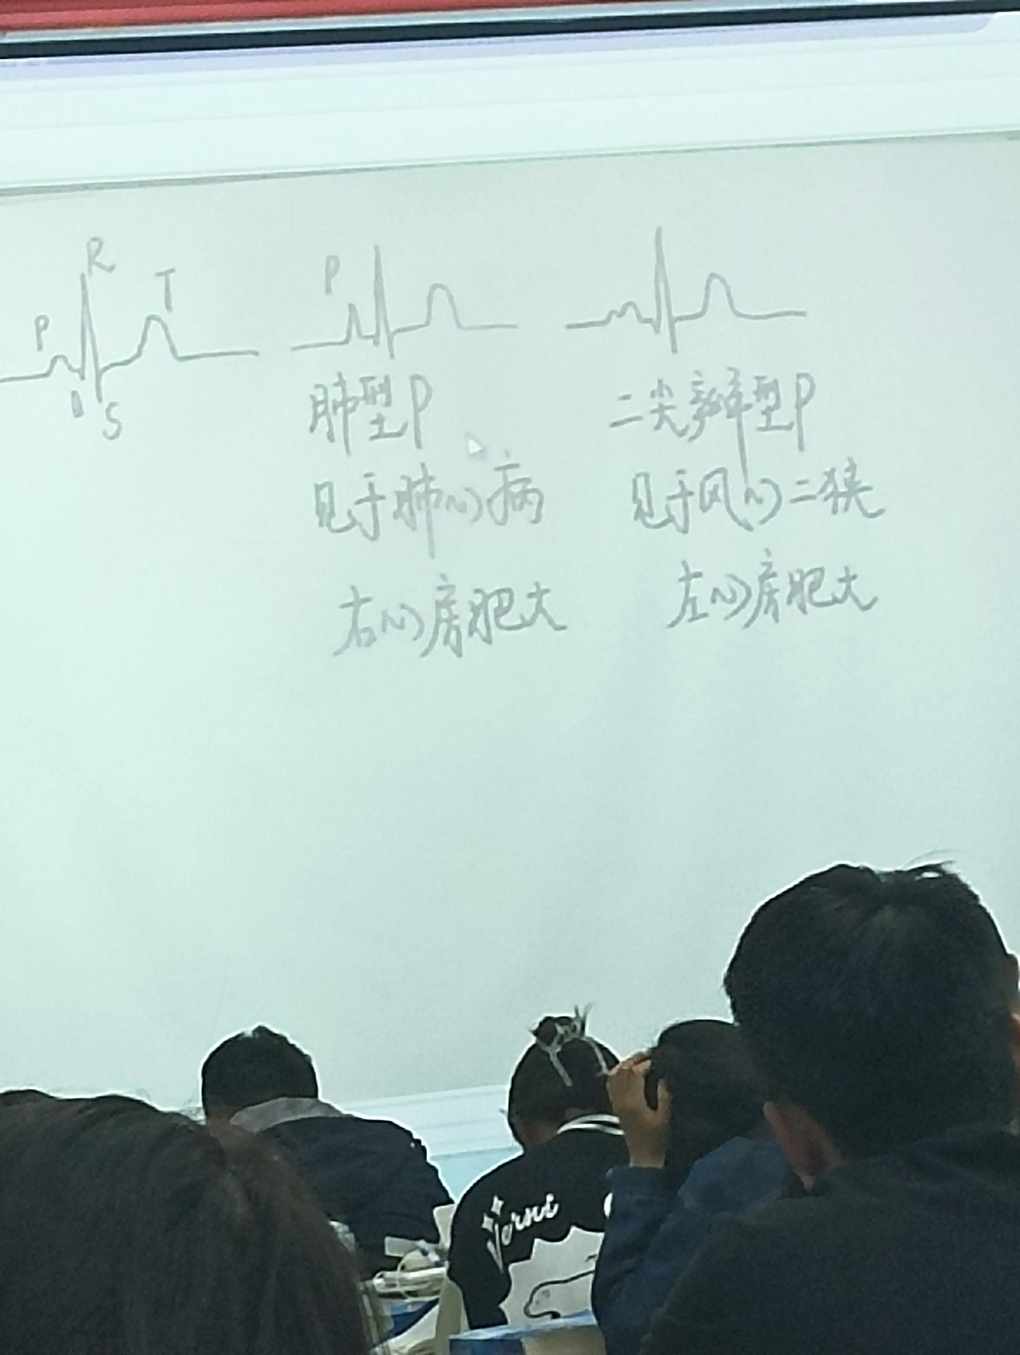 R
P
T
S
P
肺型P
见于肺心病
右心房肥大
二尖瓣型P
见于风心二狭
左心房肥大